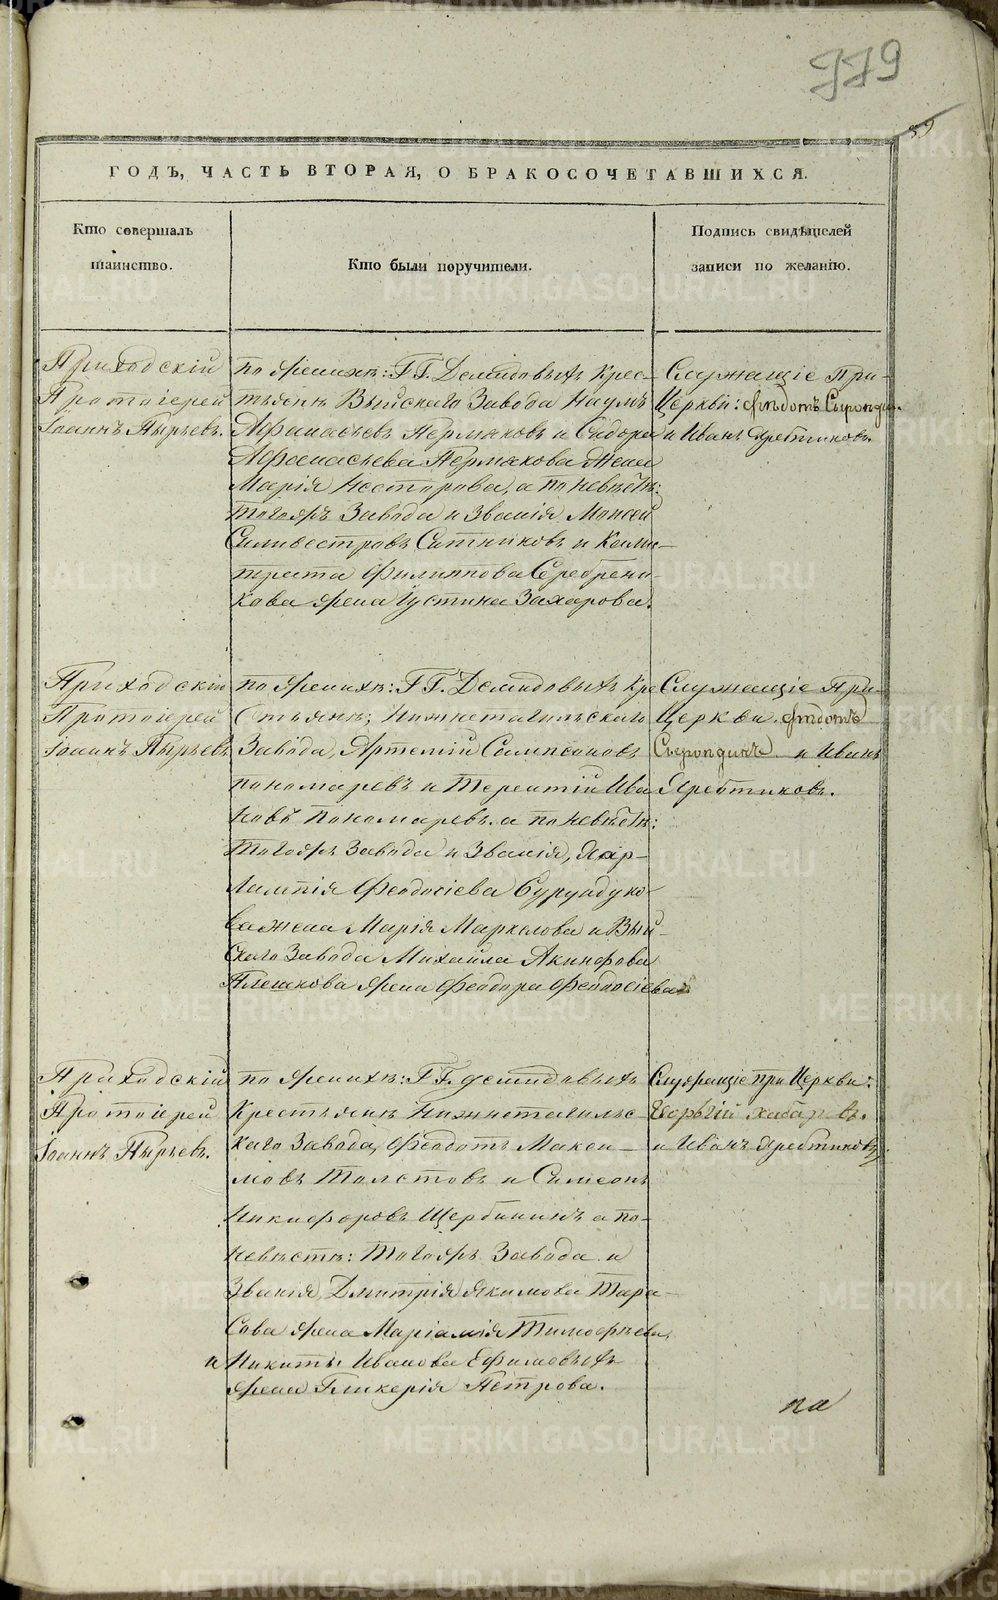 779
59
ГОДЪ, ЧАСТЬ ВТОРАЯ, О БРАКОСОЧЕТАВШИХСЯ.
Кто совершалъ
таинство.
Кто были поручители.
Подпись свидѣтелей
записи по желанію.
Приходскій
Протоіерей
Іоаннъ Пырьевъ.
по женихѣ: ГГ. Демидовыхъ Крес-
тьяне Выйскаго Завода Наумъ
Афанасьевъ Пермяковъ и Сидора
Афанасьева Пермякова Жена
Марія Нестерова, а по невѣстѣ:
тогожъ Завода и Званія Моисей
Силивестровъ Ситниковъ и Кали-
страта Филиппова Серебрени-
кова жена Іустина Захарова.
Служащіе При
Церкви: Ѳедотъ
и Иванъ Яребтиковъ.
Приходскій
Протоіерей
Іоаннъ Пырьевъ
по женихѣ: ГГ. Демидовыхъ Кре
стьяне; Нижнетагильскаго
Завода, Артемій Сампсоновъ
пономаревъ и Терентій Ива
новъ Пономаревъ. а по невѣстѣ:
тогожъ Завода и Званія, Хар-
лампія Феодосіева Бурундуко-
ва жена Марія Маркелова и Вый-
скаго Завода Михайла Акинфова
Плешкова жена Феодора Феодосіева
Служащіе При
Церкви. Ѳедотъ
и Иванъ
Яребтиковъ.
Приходскій
Протоіерей
Іоаннъ Пырьевъ.
по женихѣ: ГГ. Демидовыхъ
Крестьяне Нижнетагильс
каго Завода, Феодотъ Макси-
мовъ Толстовъ и Симеонъ
Никифоровъ Щербининъ а по-
невѣстѣ: Тогожъ Завода и
Званія, Дмитрія Якимова Тара-
сова жена Маріамія Тимофѣева,
и Никиты Иванова Ефимовыхъ
жена Гликерія Петрова.
Служащіе при Церкви:
Георгій Хабаровъ.
и Иванъ Яребтиковъ.
на
METRIKI.GASO-URAL.RU